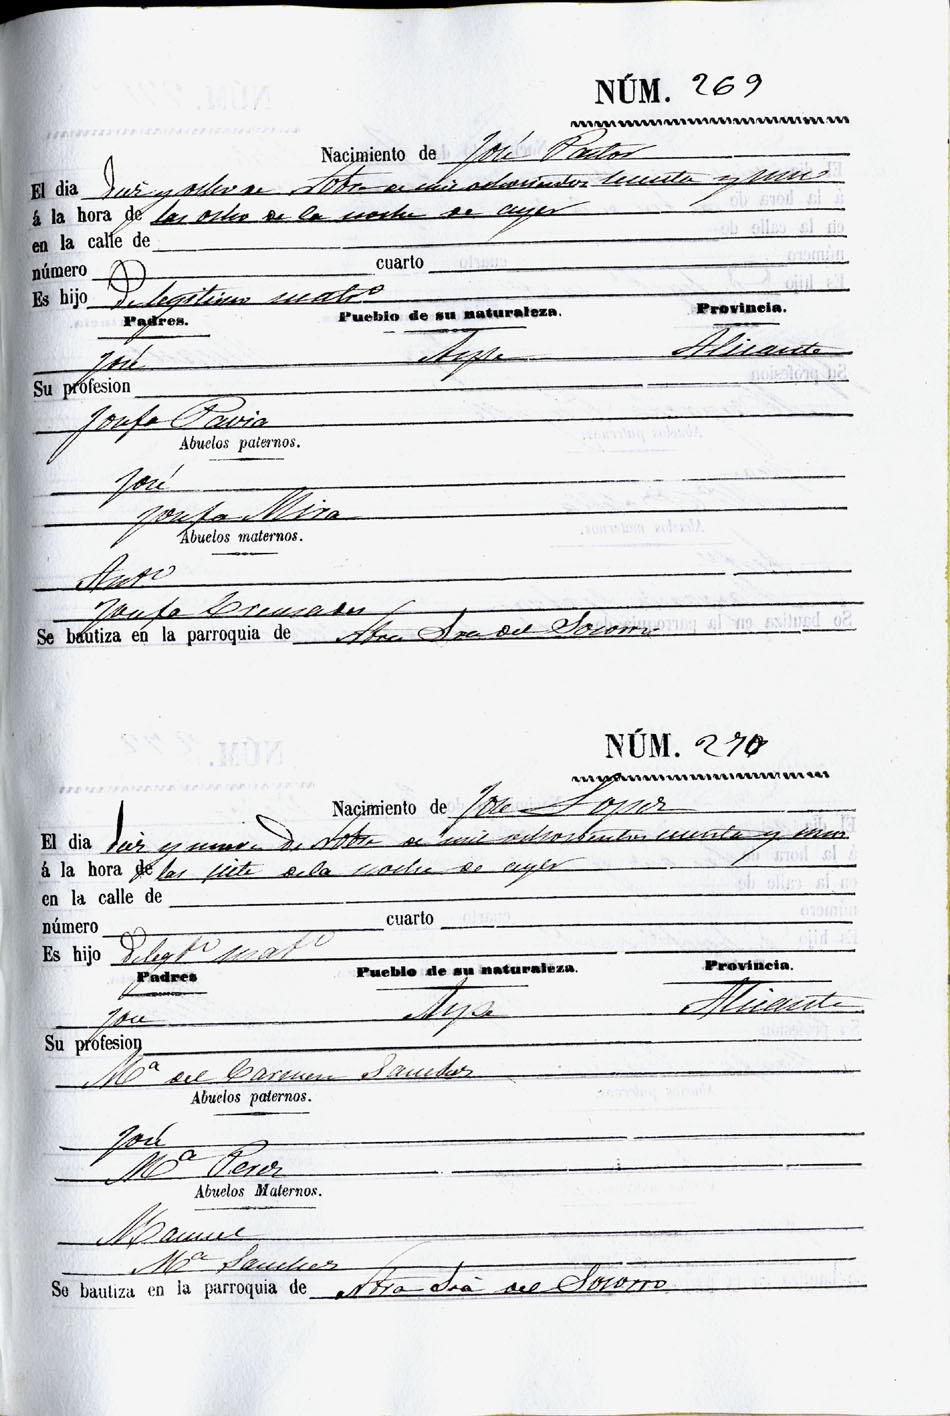 NÚM. 269
Nacimiento de José Pastor
El dia diez y ocho de 8bre de mil ochocientos y uno
á la hora de las ocho de la noche de ayer
en la calle de
número cuarto
Es hijo De legitimo matro
Padres. Pueblo de su naturaleza. Provincia.
José Aspe Alicante
Su profesion
Josefa Pavia
Abuelos paternos.
José
Josefa Mira
Abuelos maternos.
Anto
Josefa Cremades
Se bautiza en la parroquia de Ntra Sra del Socorro
NÚM. 270
Nacimiento de José Lopez
El dia diez y nueve De de mil ochocientos y uno
á la hora de las siete de la noche de ayer
en la calle de
número cuarto
Es hijo De legto mato
Padres Pueblo de su naturaleza. Provincia.
José Aspe Alicante
Su profesion
Mª del Carmen Sanchez
Abuelos paternos.
José
Mª Perez
Abuelos Maternos.
Manuel
Mª Sanchez
Se bautiza en la parroquia de Ntra Sra del Socorro